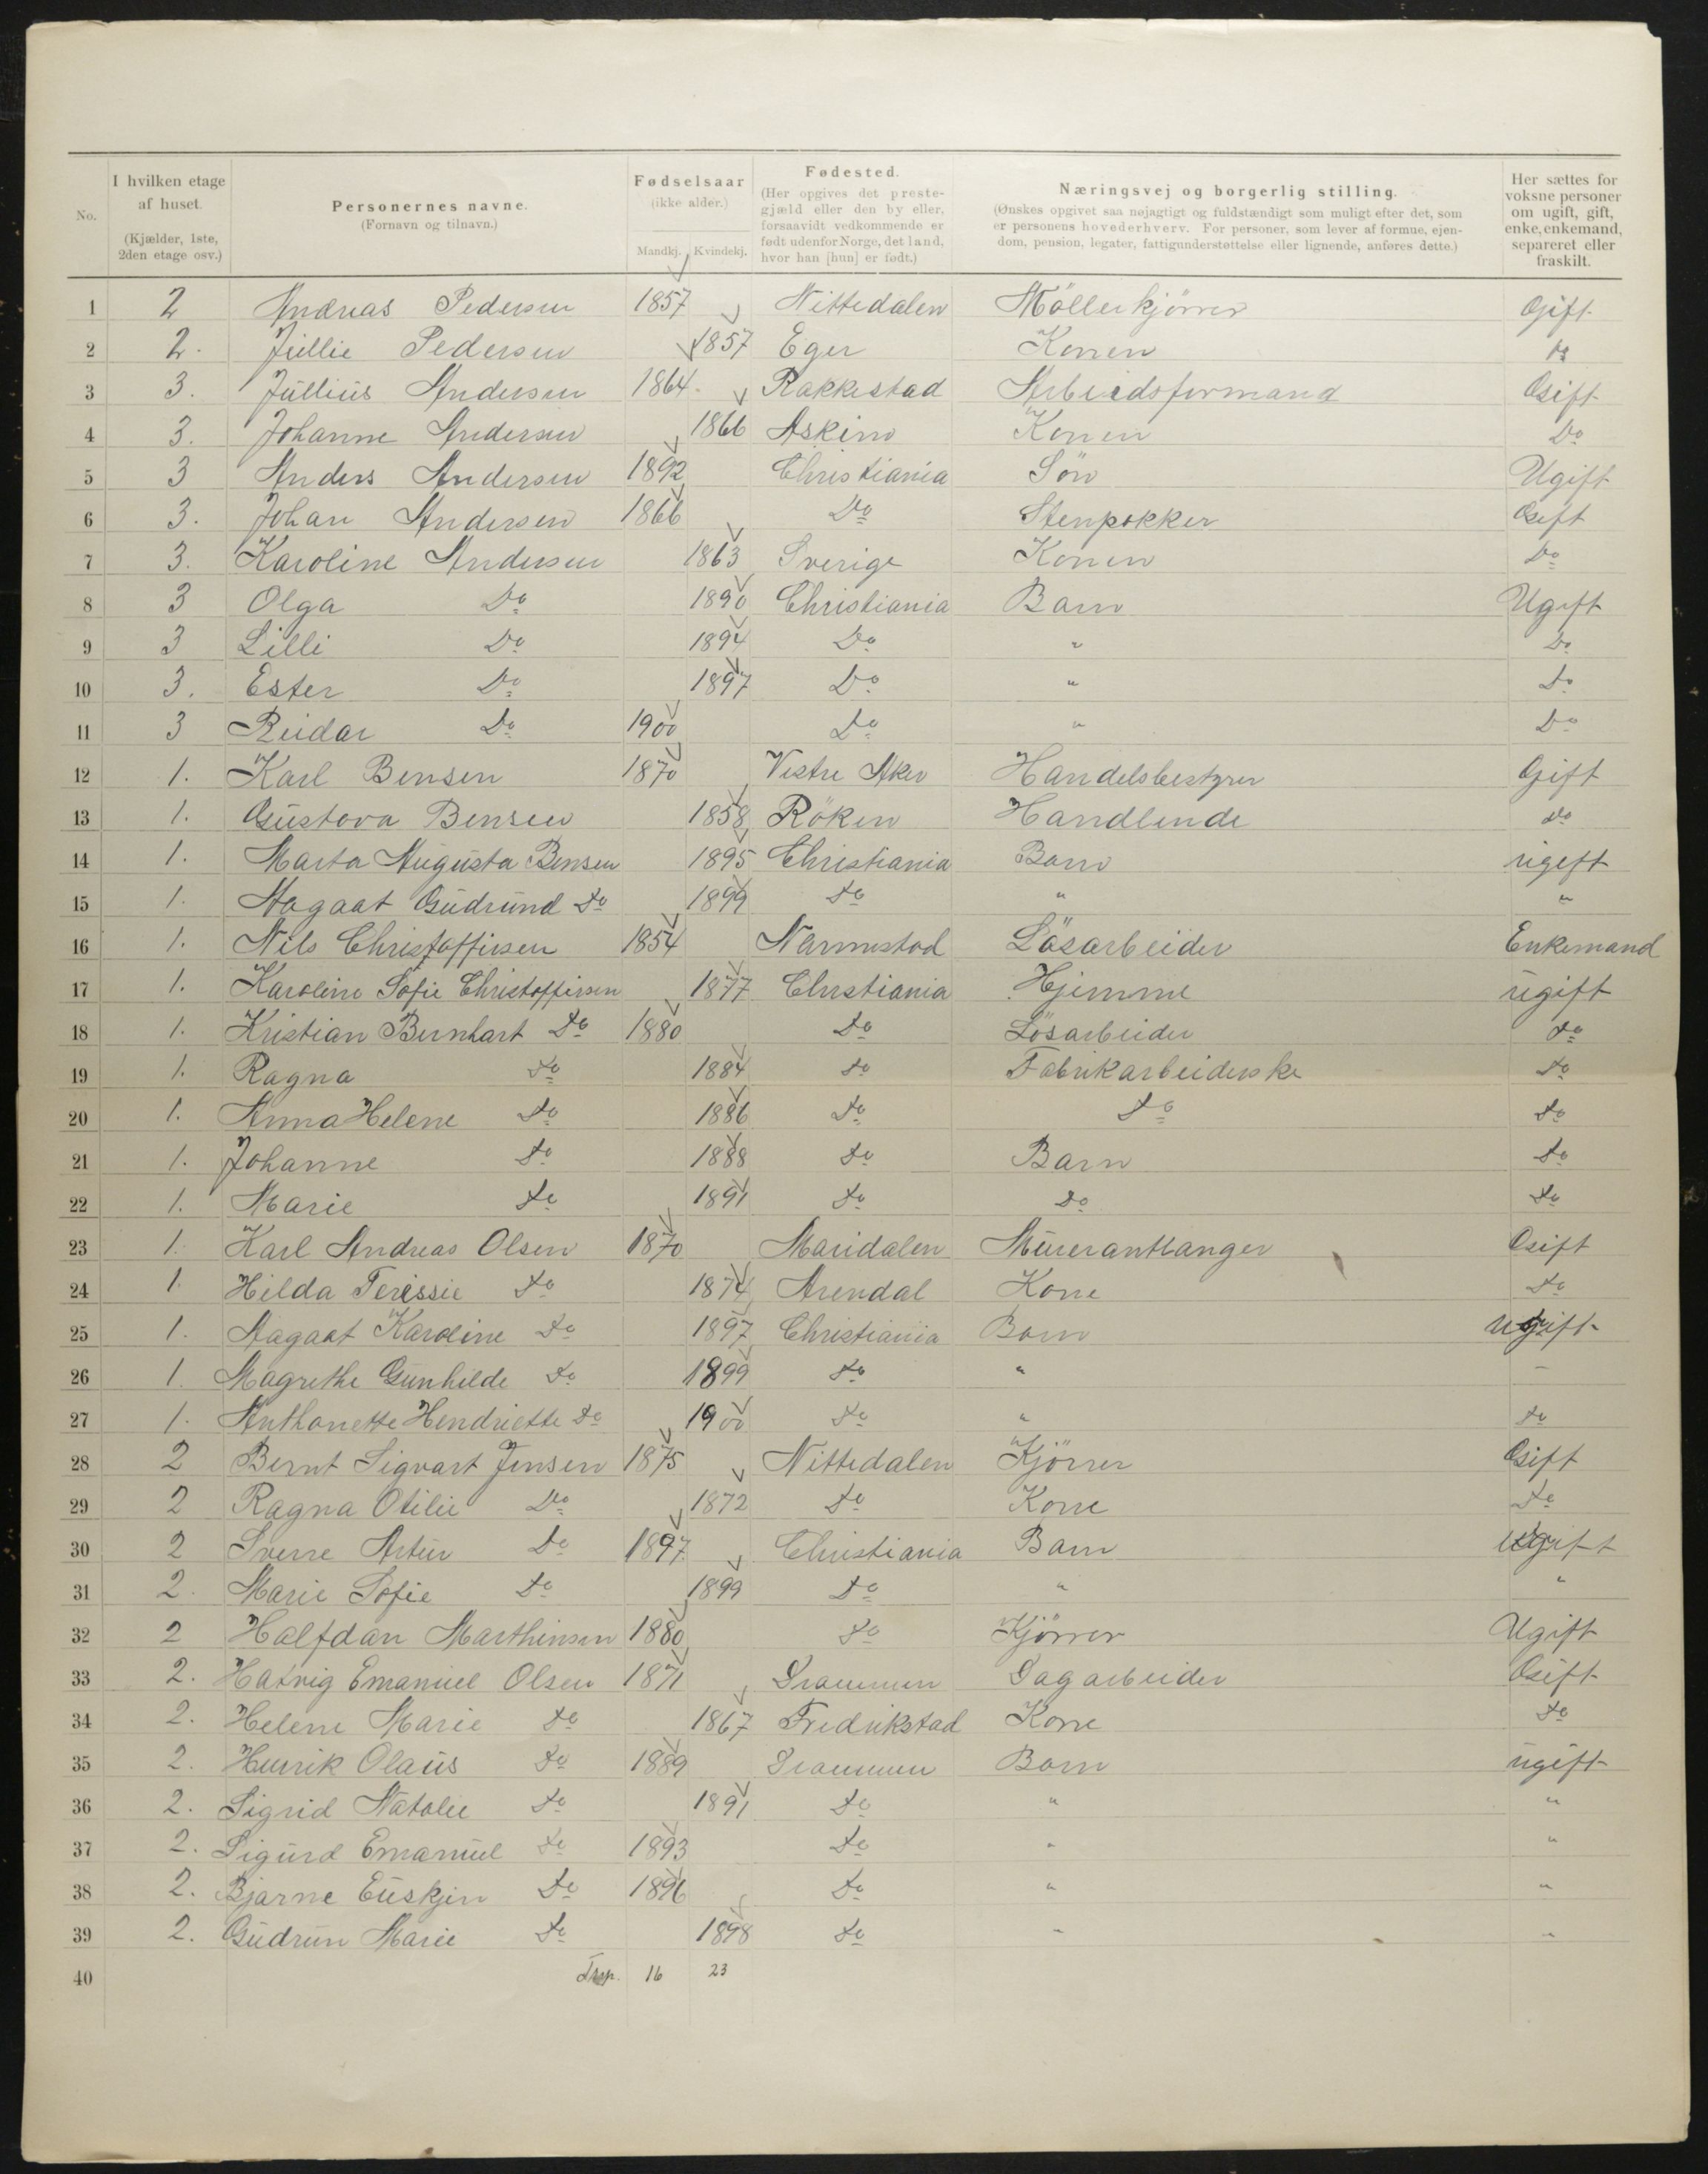 No.
I hvilken etage af huset. (Kjælder, 1ste, 2den etage osv.)
Personernes navne. (Fornavn og tilnavn.)
Fødselsaar (ikke alder.) Mandkj. Kvindekj.
Fødested. (Her opgives det prestegjæld eller den by eller, forsaavidt vedkommende er født udenfor Norge, det land, hvor han [hun] er født.)
Næringsvej og borgerlig stilling. (Ønskes opgivet saa nøjagtigt og fuldstændigt som muligt efter det, som er personens hovederhverv. For personer, som lever af formue, ejendom, pension, legater, fattigunderstøttelse eller lignende, anføres dette.)
Her sættes for voksne personer om ugift, gift, enke, enkemand, separeret eller fraskilt.
1 2 Andreas Pedersen 1857 Nittedalen Möllerkjörrer Gift
2 2. Jullie Pedersen 1857 Eger Konen
3 3. Jullius Andersen 1864 Rakkestad Arbeidsformand Gift
4 3. Johanne Andersen 1866 Askim Konen Do
5 3 Anders Andersen 1892 Christiania Sön Ugift
6 3. Johan Andersen 1866 Do Stenpokker Gift
7 3. Karoline Andersen 1863 Sverige Konen Do
8 3 Olga Do 1890 Christiania Barn Ugift
9 3 Lilli Do 1894 Do " Do
10 3. Ester Do 1897 Do " Do
11 3 Reidar Do 1900 Do " Do
12 1. Karl Bensen 1870 Vestre Aker Handelsbestyrer Gift
13 1. Gustava Bensen 1858 Röken Handlende do
14 1. Marta Augusta Bensen 1895 Christiania Barn ugift
15 1. Aagaat Gudrund do 1899 do " "
16 1. Nils Christoffersen 1854 Nannestad Lösarbeider Enkemand
17 1. Karoline Sofie Christoffersen 1877 Christiania Hjemme ugift
18 1. Kristian Bernhart do 1880 do Lösarbeider do
19 1. Ragna do 1884 do Fabrikarbeiderske do
20 1. Anna Helene do 1886 do do do
21 1. Johanne do 1888 do Barn do
22 1. Marie do 1891 do do do
23 1. Karl Andreas Olsen 1870 Maridalen Murerantlanger Gift
24 1. Hilda Terissie do 1874 Arendal Kone do
25 1. Aagaat Karoline do 1897 Christiania Barn Ugift
26 1. Magrethe Gunhilde do 1899 do " -
27 1. Anthonette Hendriette do 1900 do " do
28 2 Bernt Sigvart Jensen 1875 Nittedalen Kjörrer Gift
29 2 Ragna Otilie Do 1872 do Kone do
30 2 Sverre Artur do 1897 Christiania Barn Ugift
31 2. Marie Sofie do 1899 do " "
32 2 Halfdan Marthinsen 1880 do Kjörrer Ugift
33 2. Hatvig Emanuel Olsen 1871 Drammen Sagarbeider Gift
34 2. Helene Marie do 1867 Fredrikstad Kone do
35 2. Henrik Olaus do 1889 Drammen Barn ugift
36 2. Sigrid Natalie do 1891 do " "
37 2. Sigurd Emanuel do 1893 do " "
38 2. Bjarne Euskjin do 1896 do " "
39 2. Gudrun Marie do 1898 do " "
40 16 23